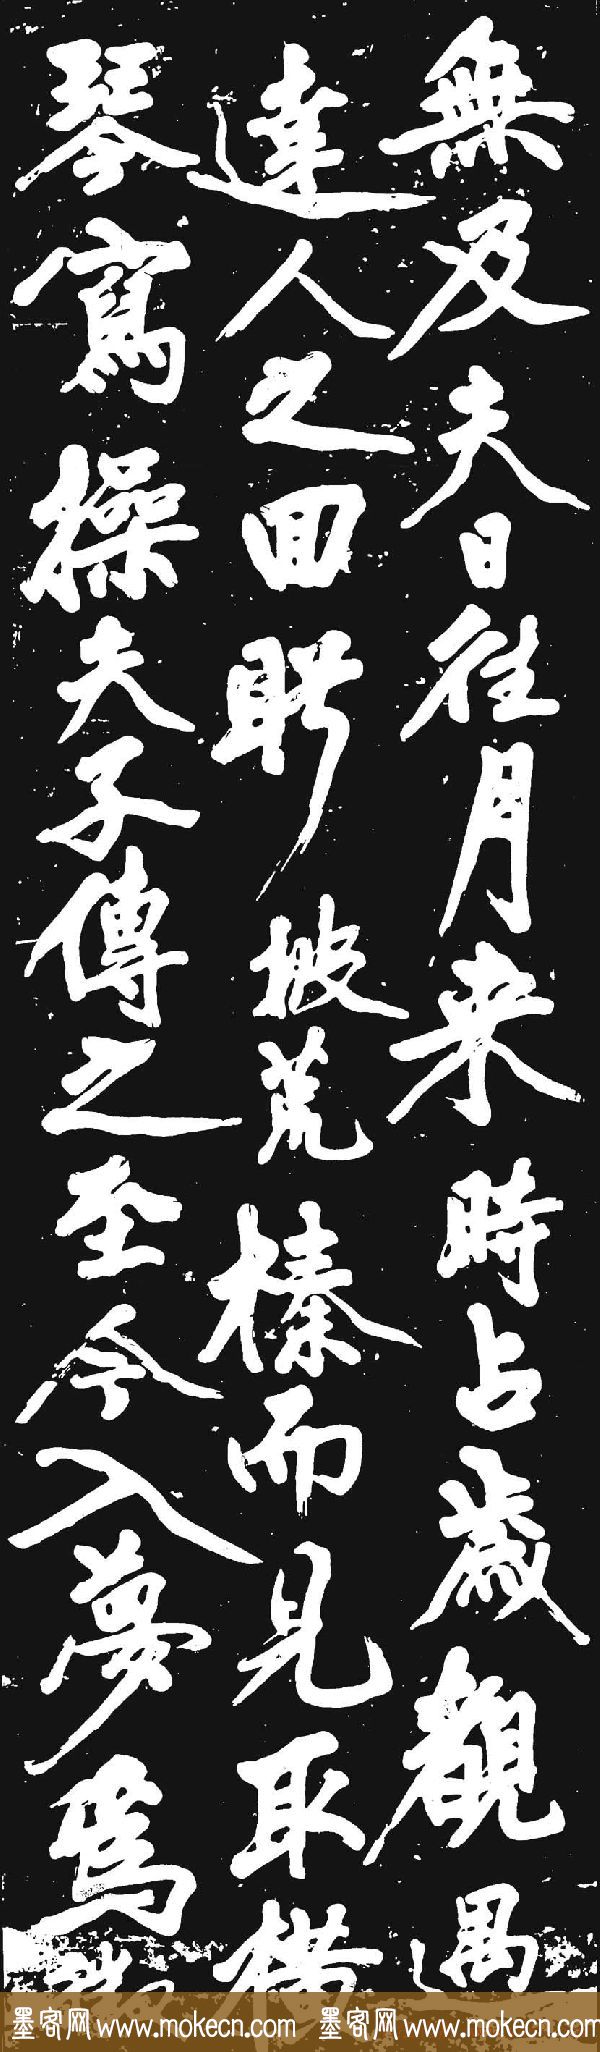 無及夫日往月来時占歲觀遇
達人之回眄披荒榛而見取横
琴寫操夫子傳之至今入夢爲
墨客网 www.mokecn.com 墨客网 www.mokecn.com